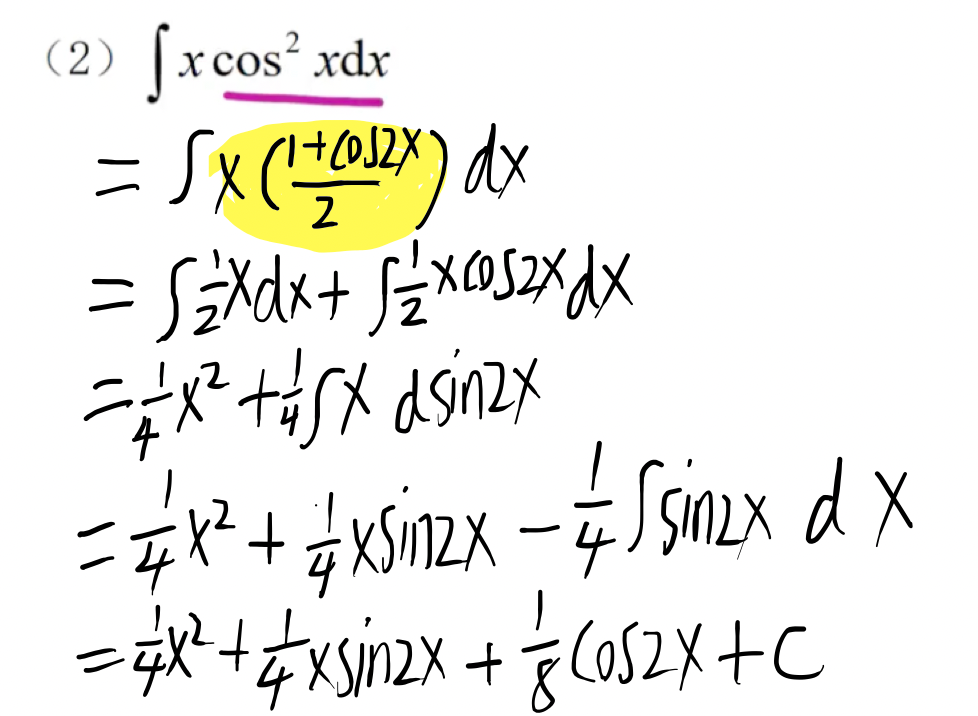 （2）∫x cos² xdx
= ∫x(\frac{1+cos2x}{2}) dx
= ∫\frac{1}{2}xdx + ∫\frac{1}{2}xcos2xdx
= \frac{1}{4}x² + \frac{1}{4}∫x dsin2x
= \frac{1}{4}x² + \frac{1}{4}xsin2x - \frac{1}{4}∫sin2x d x
= \frac{1}{4}x² + \frac{1}{4}xsin2x + \frac{1}{8}cos2x + C